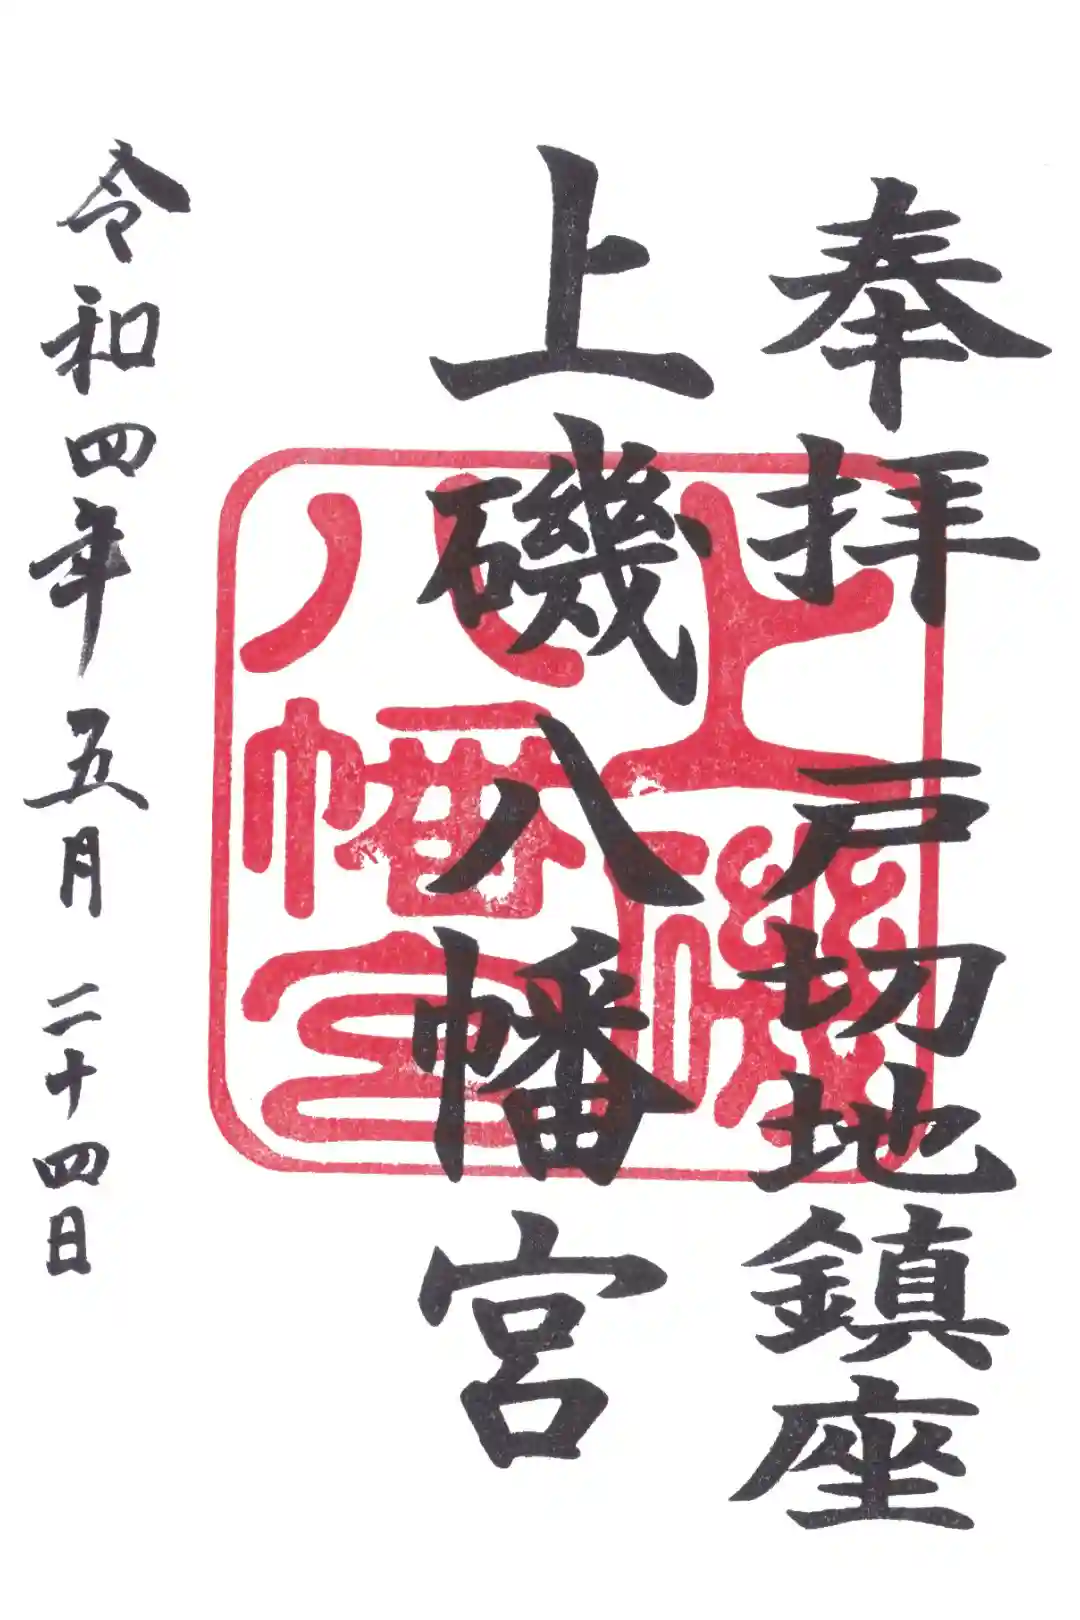 奉拝 戸切地鎮座
上磯八幡宮
令和四年五月二十四日
上磯
八幡宮